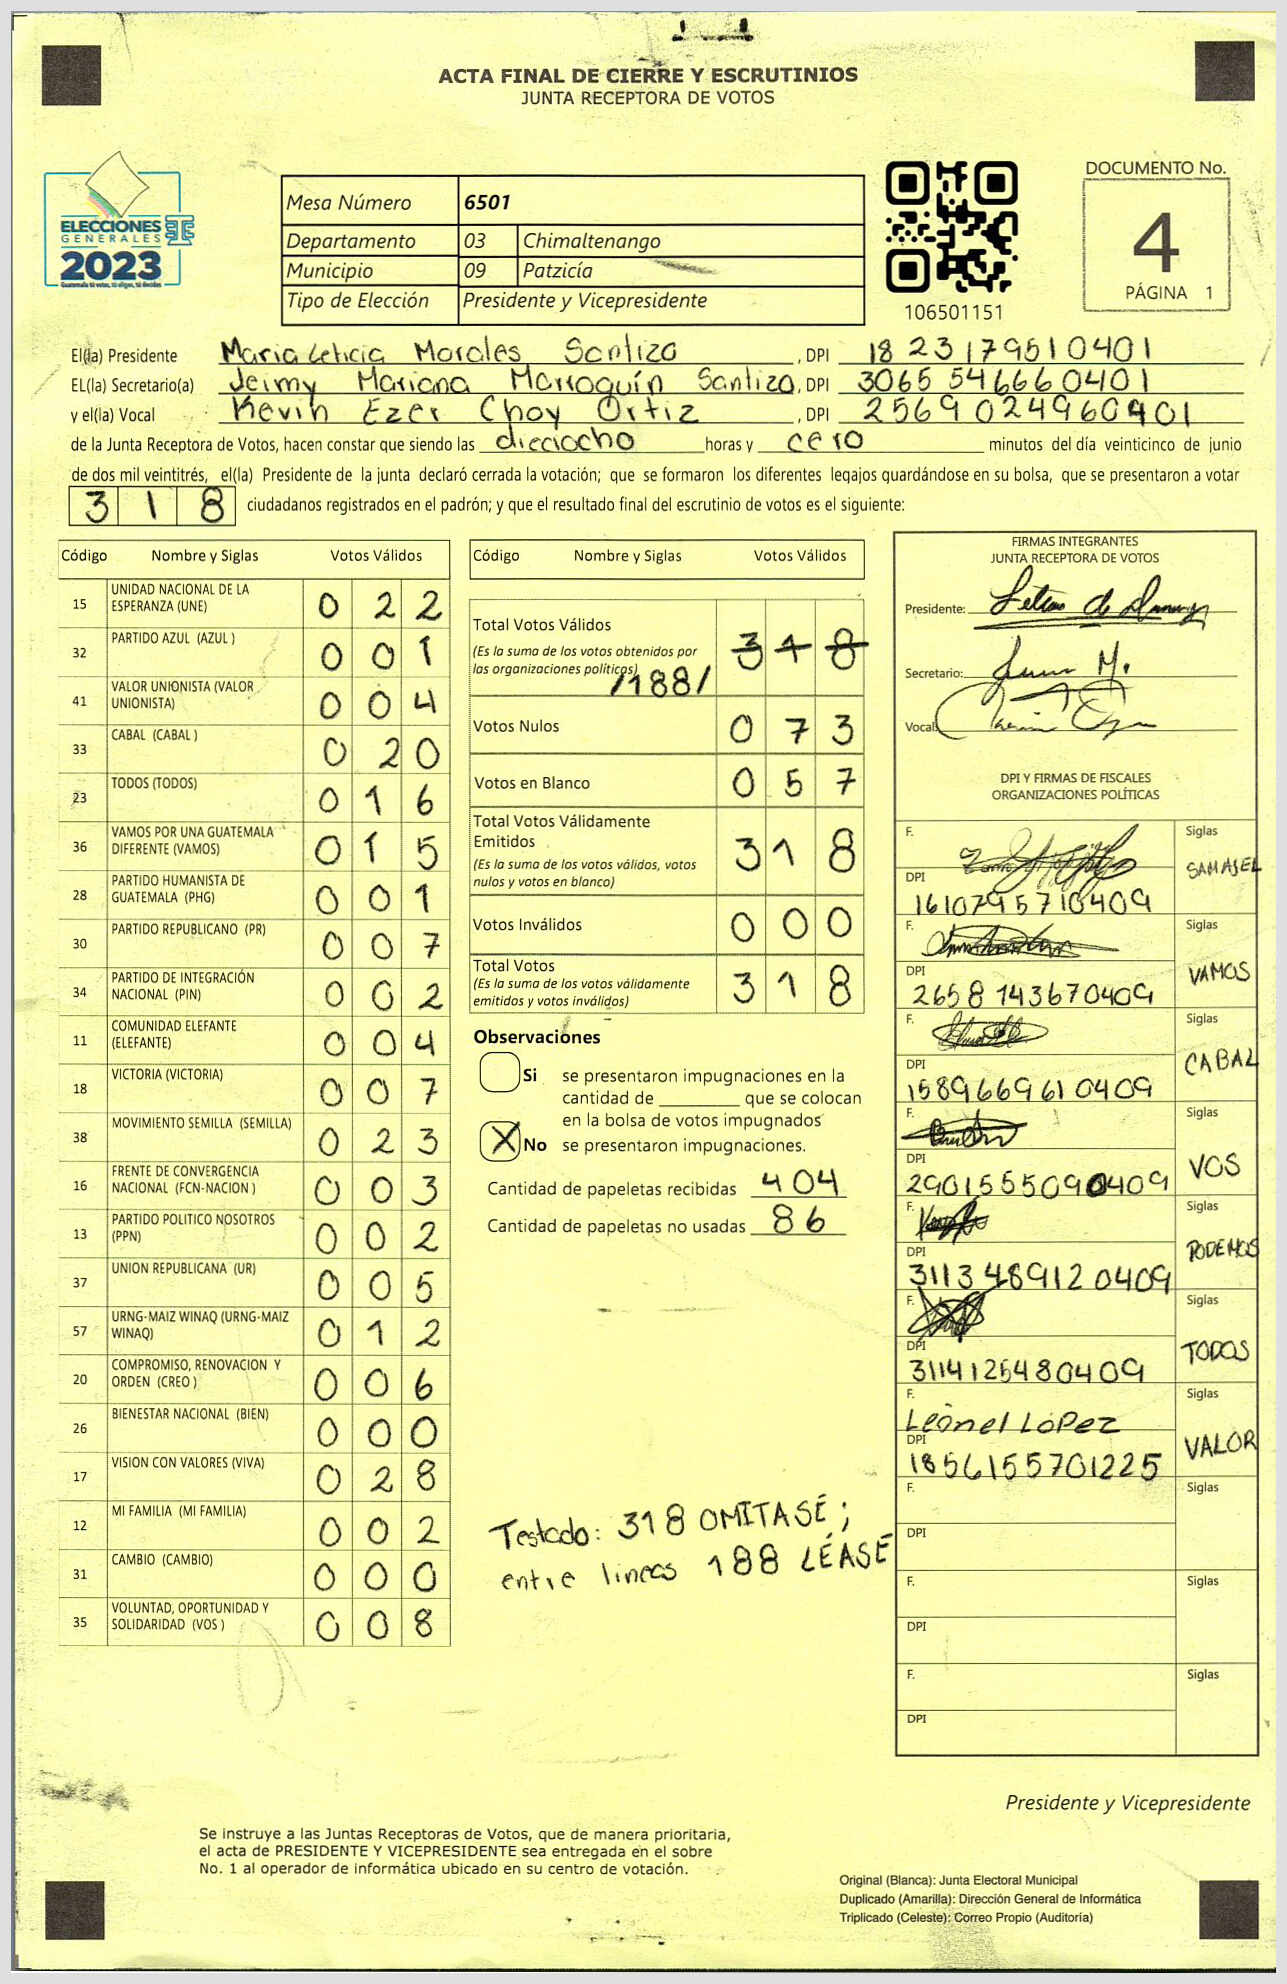 ACTA FINAL DE CIERRE Y ESCRUTINIOS
JUNTA RECEPTORA DE VOTOS
ELECCIONES
GENERALES
2023
Guatemala tú votas, tú eliges, tú decides
Mesa Número 6501
Departamento 03 Chimaltenango
Municipio 09 Patzicía
Tipo de Elección Presidente y Vicepresidente
106501151
DOCUMENTO No.
4
PÁGINA 1
El(la) Presidente Maria Leticia Morales Santizo, DPI 1823179510401
EL(la) Secretario(a) Jeimy Mariana Marroquín Santizo, DPI 3065 546660401
y el(la) Vocal Kevin Ezer Choy Ortiz, DPI 2569024960401
de la Junta Receptora de Votos, hacen constar que siendo las dieciocho horas y cero minutos del día veinticinco de junio
de dos mil veintitrés, el(la) Presidente de la junta declaró cerrada la votación; que se formaron los diferentes legajos guardándose en su bolsa, que se presentaron a votar
318 ciudadanos registrados en el padrón; y que el resultado final del escrutinio de votos es el siguiente:
Código Nombre y Siglas Votos Válidos
15 UNIDAD NACIONAL DE LA ESPERANZA (UNE) 022
32 PARTIDO AZUL (AZUL ) 001
41 VALOR UNIONISTA (VALOR UNIONISTA) 004
33 CABAL (CABAL ) 020
23 TODOS (TODOS) 016
36 VAMOS POR UNA GUATEMALA DIFERENTE (VAMOS) 015
28 PARTIDO HUMANISTA DE GUATEMALA (PHG) 001
30 PARTIDO REPUBLICANO (PR) 007
34 PARTIDO DE INTEGRACIÓN NACIONAL (PIN) 002
11 COMUNIDAD ELEFANTE (ELEFANTE) 004
18 VICTORIA (VICTORIA) 007
38 MOVIMIENTO SEMILLA (SEMILLA) 023
16 FRENTE DE CONVERGENCIA NACIONAL (FCN-NACION ) 003
13 PARTIDO POLITICO NOSOTROS (PPN) 002
37 UNION REPUBLICANA (UR) 005
57 URNG-MAIZ WINAQ (URNG-MAIZ WINAQ) 012
20 COMPROMISO, RENOVACION Y ORDEN (CREO ) 006
26 BIENESTAR NACIONAL (BIEN) 000
17 VISION CON VALORES (VIVA) 028
12 MI FAMILIA (MI FAMILIA) 002
31 CAMBIO (CAMBIO) 000
35 VOLUNTAD, OPORTUNIDAD Y SOLIDARIDAD (VOS ) 008
Código Nombre y Siglas Votos Válidos
Total Votos Válidos 318
(Es la suma de los votos obtenidos por
las organizaciones políticas)
/188/
Votos Nulos 073
Votos en Blanco 057
Total Votos Válidamente
Emitidos 318
(Es la suma de los votos válidos, votos
nulos y votos en blanco)
Votos Inválidos 000
Total Votos 318
(Es la suma de los votos válidamente
emitidos y votos inválidos)
Observaciones
Si se presentaron impugnaciones en la
cantidad de ________ que se colocan
en la bolsa de votos impugnados
X No se presentaron impugnaciones.
Cantidad de papeletas recibidas 404
Cantidad de papeletas no usadas 86
Testado: 318 OMITASÉ;
entre lineas 188 LÉASÉ
FIRMAS INTEGRANTES
JUNTA RECEPTORA DE VOTOS
Presidente:
Secretario:
Vocal:
DPI Y FIRMAS DE FISCALES
ORGANIZACIONES POLÍTICAS
F. Siglas
SAMAJEL
DPI
1610795710409
F. Siglas
VAMOS
DPI
2658 143670409
F. Siglas
CABAL
DPI
1589669610409
F. Siglas
VOS
DPI
2901555090409
F. Siglas
PODEMOS
DPI
3113489120409
F. Siglas
TODOS
DPI
3114125480409
F. Siglas
Leonel LóPez
VALOR
DPI
1856155701225
F. Siglas
DPI
F. Siglas
DPI
F. Siglas
DPI
Presidente y Vicepresidente
Se instruye a las Juntas Receptoras de Votos, que de manera prioritaria,
el acta de PRESIDENTE Y VICEPRESIDENTE sea entregada en el sobre
No. 1 al operador de informática ubicado en su centro de votación.
Original (Blanca): Junta Electoral Municipal
Duplicado (Amarilla): Dirección General de Informática
Triplicado (Celeste): Correo Propio (Auditoría)